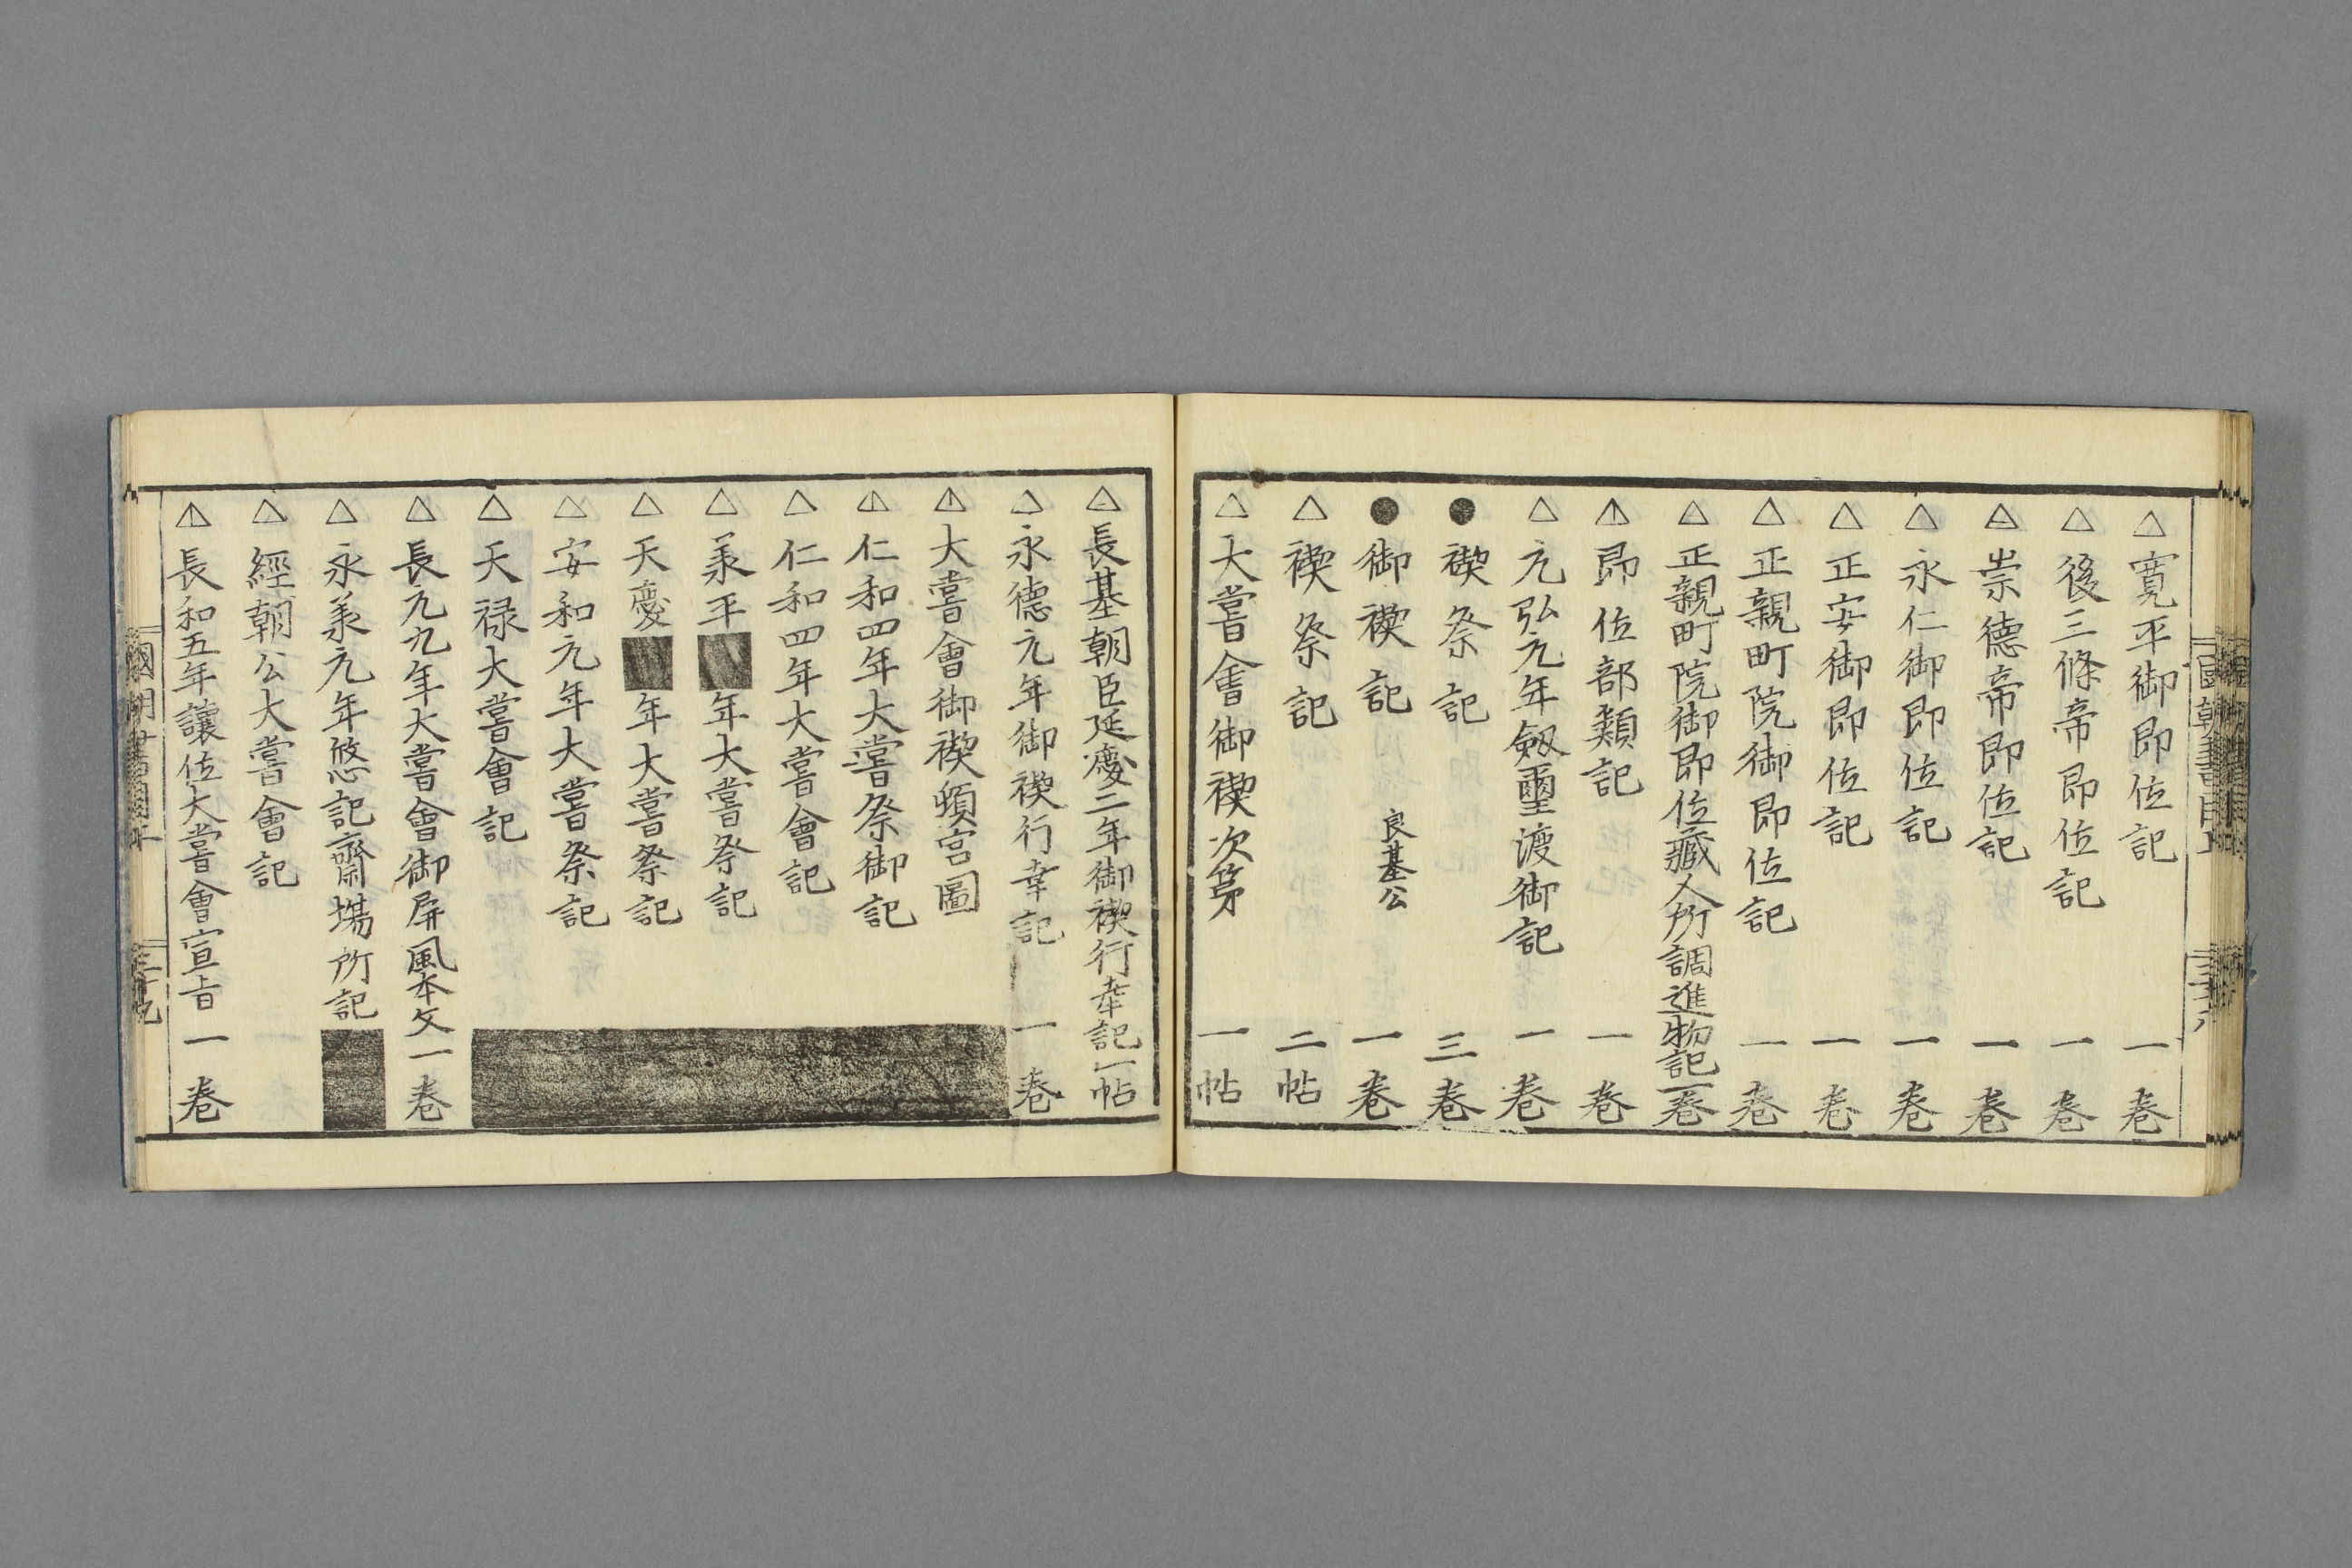 △寛平御即位記 一巻
△後三條帝即位記 一巻
△崇德帝即位記 一巻
△永仁御即位記 一巻
△正安御即位記 一巻
△正親町院御即位記 一巻
△正親町院御即位藏人所調進物記 一巻
△即位部類記 一巻
△元弘元年劔璽渡御記 一巻
●禊祭記 三巻
●御禊記 良基公 一巻
△禊祭記 二帖
△大嘗會御禊次第 一帖
△長基朝臣延慶二年御禊行幸記 一帖
△永德元年御禊行幸記 一巻
△大嘗會御禊頓宮圖
△仁和四年大嘗祭御記
△仁和四年大嘗會記
△羕平■年大嘗祭記
△天慶■年大嘗祭記
△安和元年大嘗祭記
△天禄大嘗會記
△長九九年大嘗會御屏風本文 一巻
△永羕元年悠記齋場所記
△經朝公大嘗會記
△長和五年讓位大嘗會宣旨 一巻